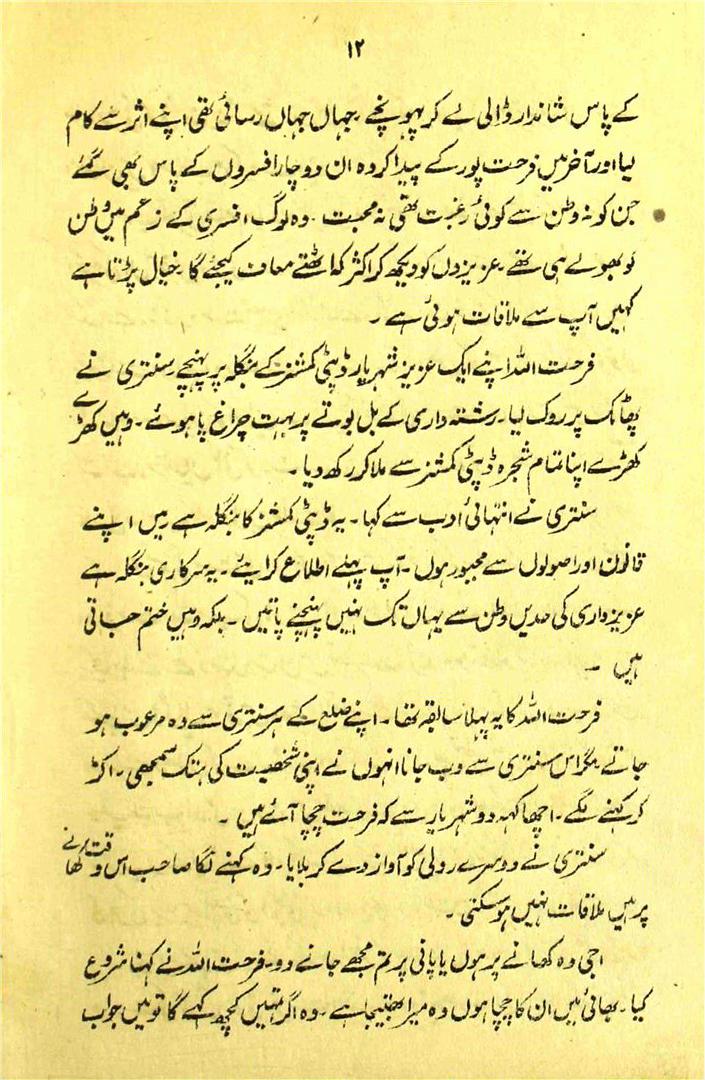 ۱۲
کے پاس شاندار ڈالی لے کر پہونچے۔ جہاں جہاں رسائی تھی اپنے اثر سے کام
لیا اور آخر میں فرحت پور کے پیدا کردہ ان دو چار افسروں کے پاس بھی گئے
جن کو نہ وطن سے کوئی رغبت تھی نہ محبت۔ وہ لوگ افسری کے زعم میں وطن
کو بھولے ہی تھے۔ عزیزوں کو دیکھ کر اکثر کہہ اٹھتے معاف کیجئے گا۔ خیال پڑتا ہے
کہیں آپ سے ملاقات ہوئی ہے۔
فرحت اللہ اپنے ایک عزیز شہریار ڈپٹی کمشنر کے بنگلہ پر پہنچے۔ سنتری نے
پھاٹک پر روک لیا۔ رشتہ داری کے بل بوتے پر بہت چراغ پا ہوئے۔ وہیں کھڑے
کھڑے اپنا تمام شجرہ ڈپٹی کمشنر سے ملا کر رکھ دیا۔
سنتری نے انتہائی ادب سے کہا۔ یہ ڈپٹی کمشنر کا بنگلہ ہے میں اپنے
قانون اور اصولوں سے مجبور ہوں۔ آپ پہلے اطلاع کرائیے۔ یہ سرکاری بنگلہ ہے
عزیز داری کی حدیں وطن سے یہاں تک نہیں پہنچنے پاتیں۔ بلکہ وہیں ختم ہوجاتی
ہیں۔
فرحت اللہ کا یہ پہلا سابقہ تھا۔ اپنے ضلع کے ہر سنتری سے وہ مرعوب ہو
جاتے مگر اس سنتری سے دب جانا انہوں نے اپنی شخصیت کی ہتک سمجھی۔ اکڑ
کر کہنے لگے۔ اچھا کہہ دو شہریار سے کہ فرحت چچا آئے ہیں۔
سنتری نے دوسرے اردلی کو آواز دے کر بلایا۔ وہ کہنے لگا صاحب اس وقت کھانے
پر ہیں ملاقات نہیں ہو سکتی۔
اجی وہ کھانے پر ہوں یا پانی پر تم مجھے جانے دو۔ فرحت اللہ نے کہنا شروع
کیا۔ بھائی میں ان کا چچا ہوں وہ میرا بھتیجا ہے۔ وہ اگر تمہیں کچھ کہے گا تو میں جواب